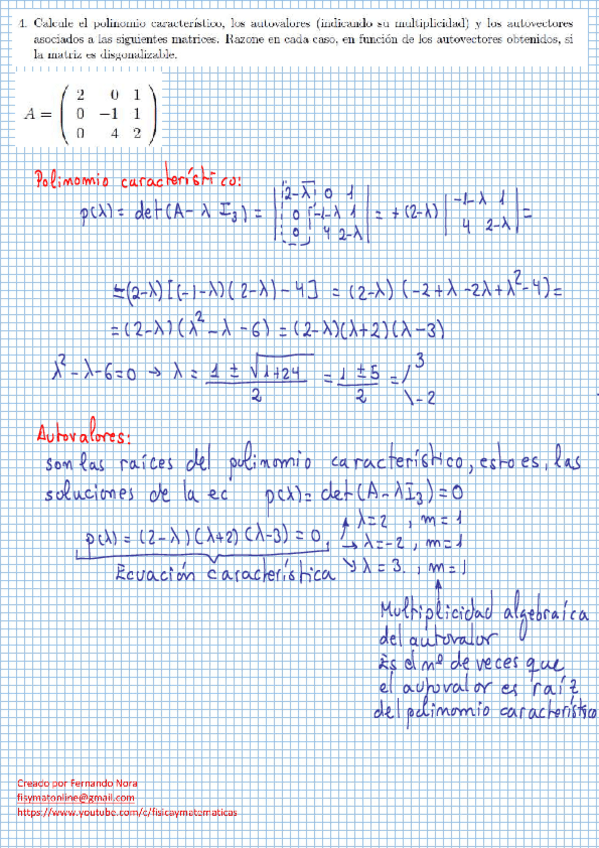 4. Calcule el polinomio característico, los autovalores (indicando su multiplicidad) y los autovectores
asociados a las siguientes matrices. Razone en cada caso, en función de los autovectores obtenidos, si
la matriz es diagonalizable.
A = ( 2 0 1
0 −1 1
0 4 2 )
Polinomio característico:
p(λ) = det(A − λ I₃) = | 2-λ 0 1
0 -1-λ 1
0 4 2-λ | = +(2-λ) | -1-λ 1
4 2-λ | =
=(2-λ)[(-1-λ)(2-λ)-4] = (2-λ)(-2+λ-2λ+λ²-4) =
= (2-λ)(λ²-λ-6) = (2-λ)(λ+2)(λ-3)
λ²-λ-6=0 → λ = (1 ± √(1+24))/2 = (1 ± 5)/2 = 3
-2
Autovalores:
son las raíces del polinomio característico, esto es, las
soluciones de la ec p(λ) = det(A-λI₃) = 0
p(λ) = (2-λ)(λ+2)(λ-3) = 0
λ=2 , m=1
→ λ=-2 , m=1
λ=3. , m=1
Ecuación característica
Multiplicidad algebraíca
del autovalor
Es el nº de veces que
el autovalor es raíz
del polinomio característico
Creado por Fernando Nora
fisymatonline@gmail.com
https://www.youtube.com/c/fisicaymatematicas